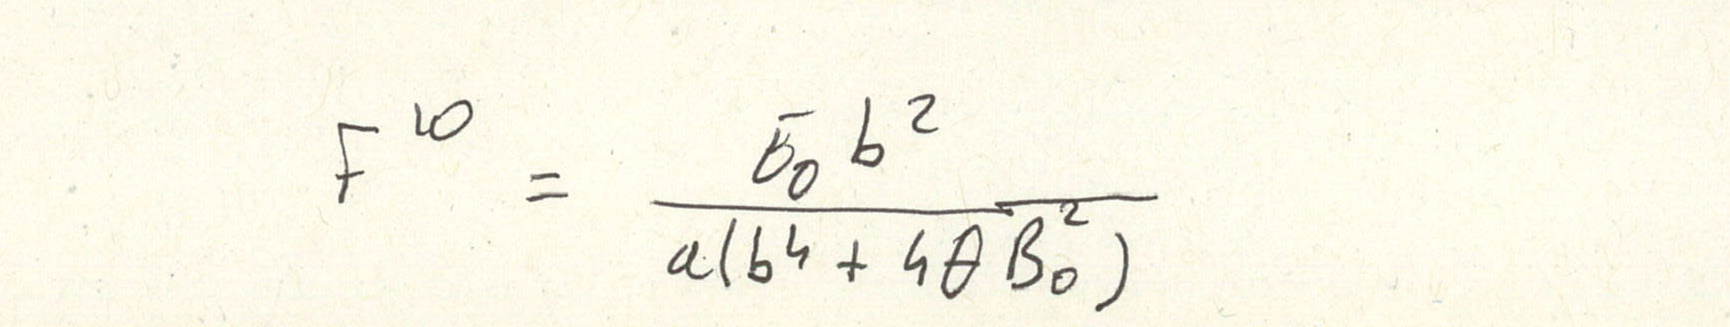 F^{10} = \frac{E_0 b^2}{a(b^4 + 4θB_0^2)}